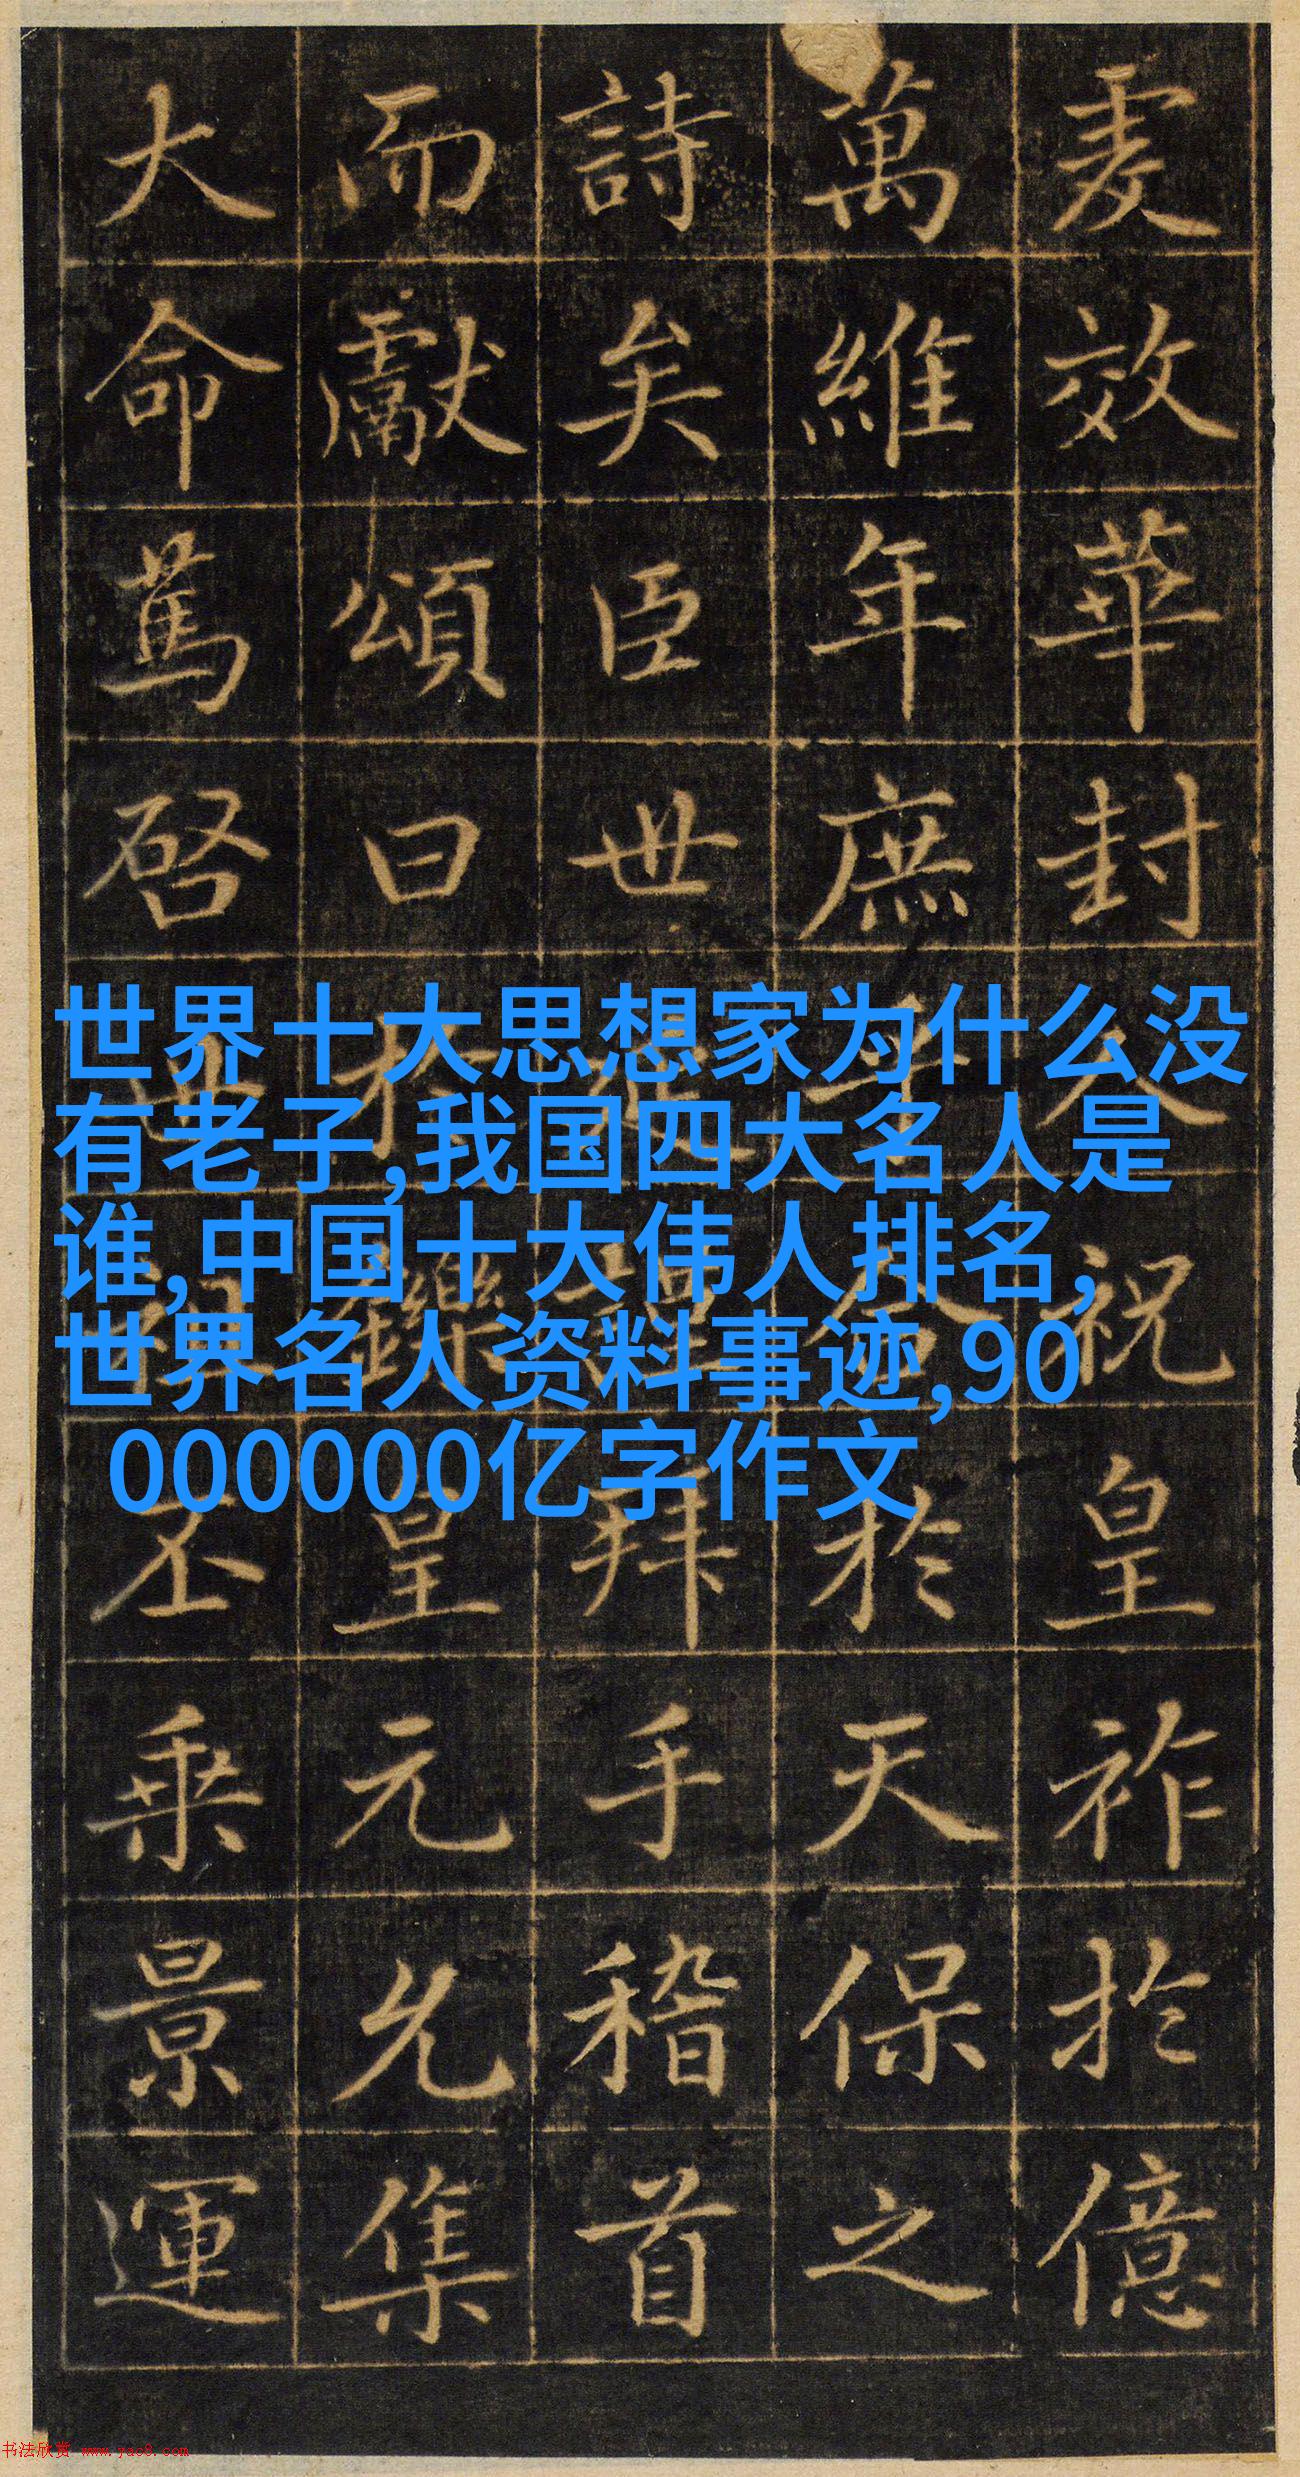 爰效華封祝皇祚於億
萬維年庶於天保之
詩矣臣世拜手稽首
而獻頌曰於鑠皇元允集
大命篤啓丕乘景運
世界十大思想家为什么没
有老子,我国四大名人是
谁,中国十大伟人排名,
世界名人资料事迹,90
000000亿字作文
书法欣赏 www.yac8.com